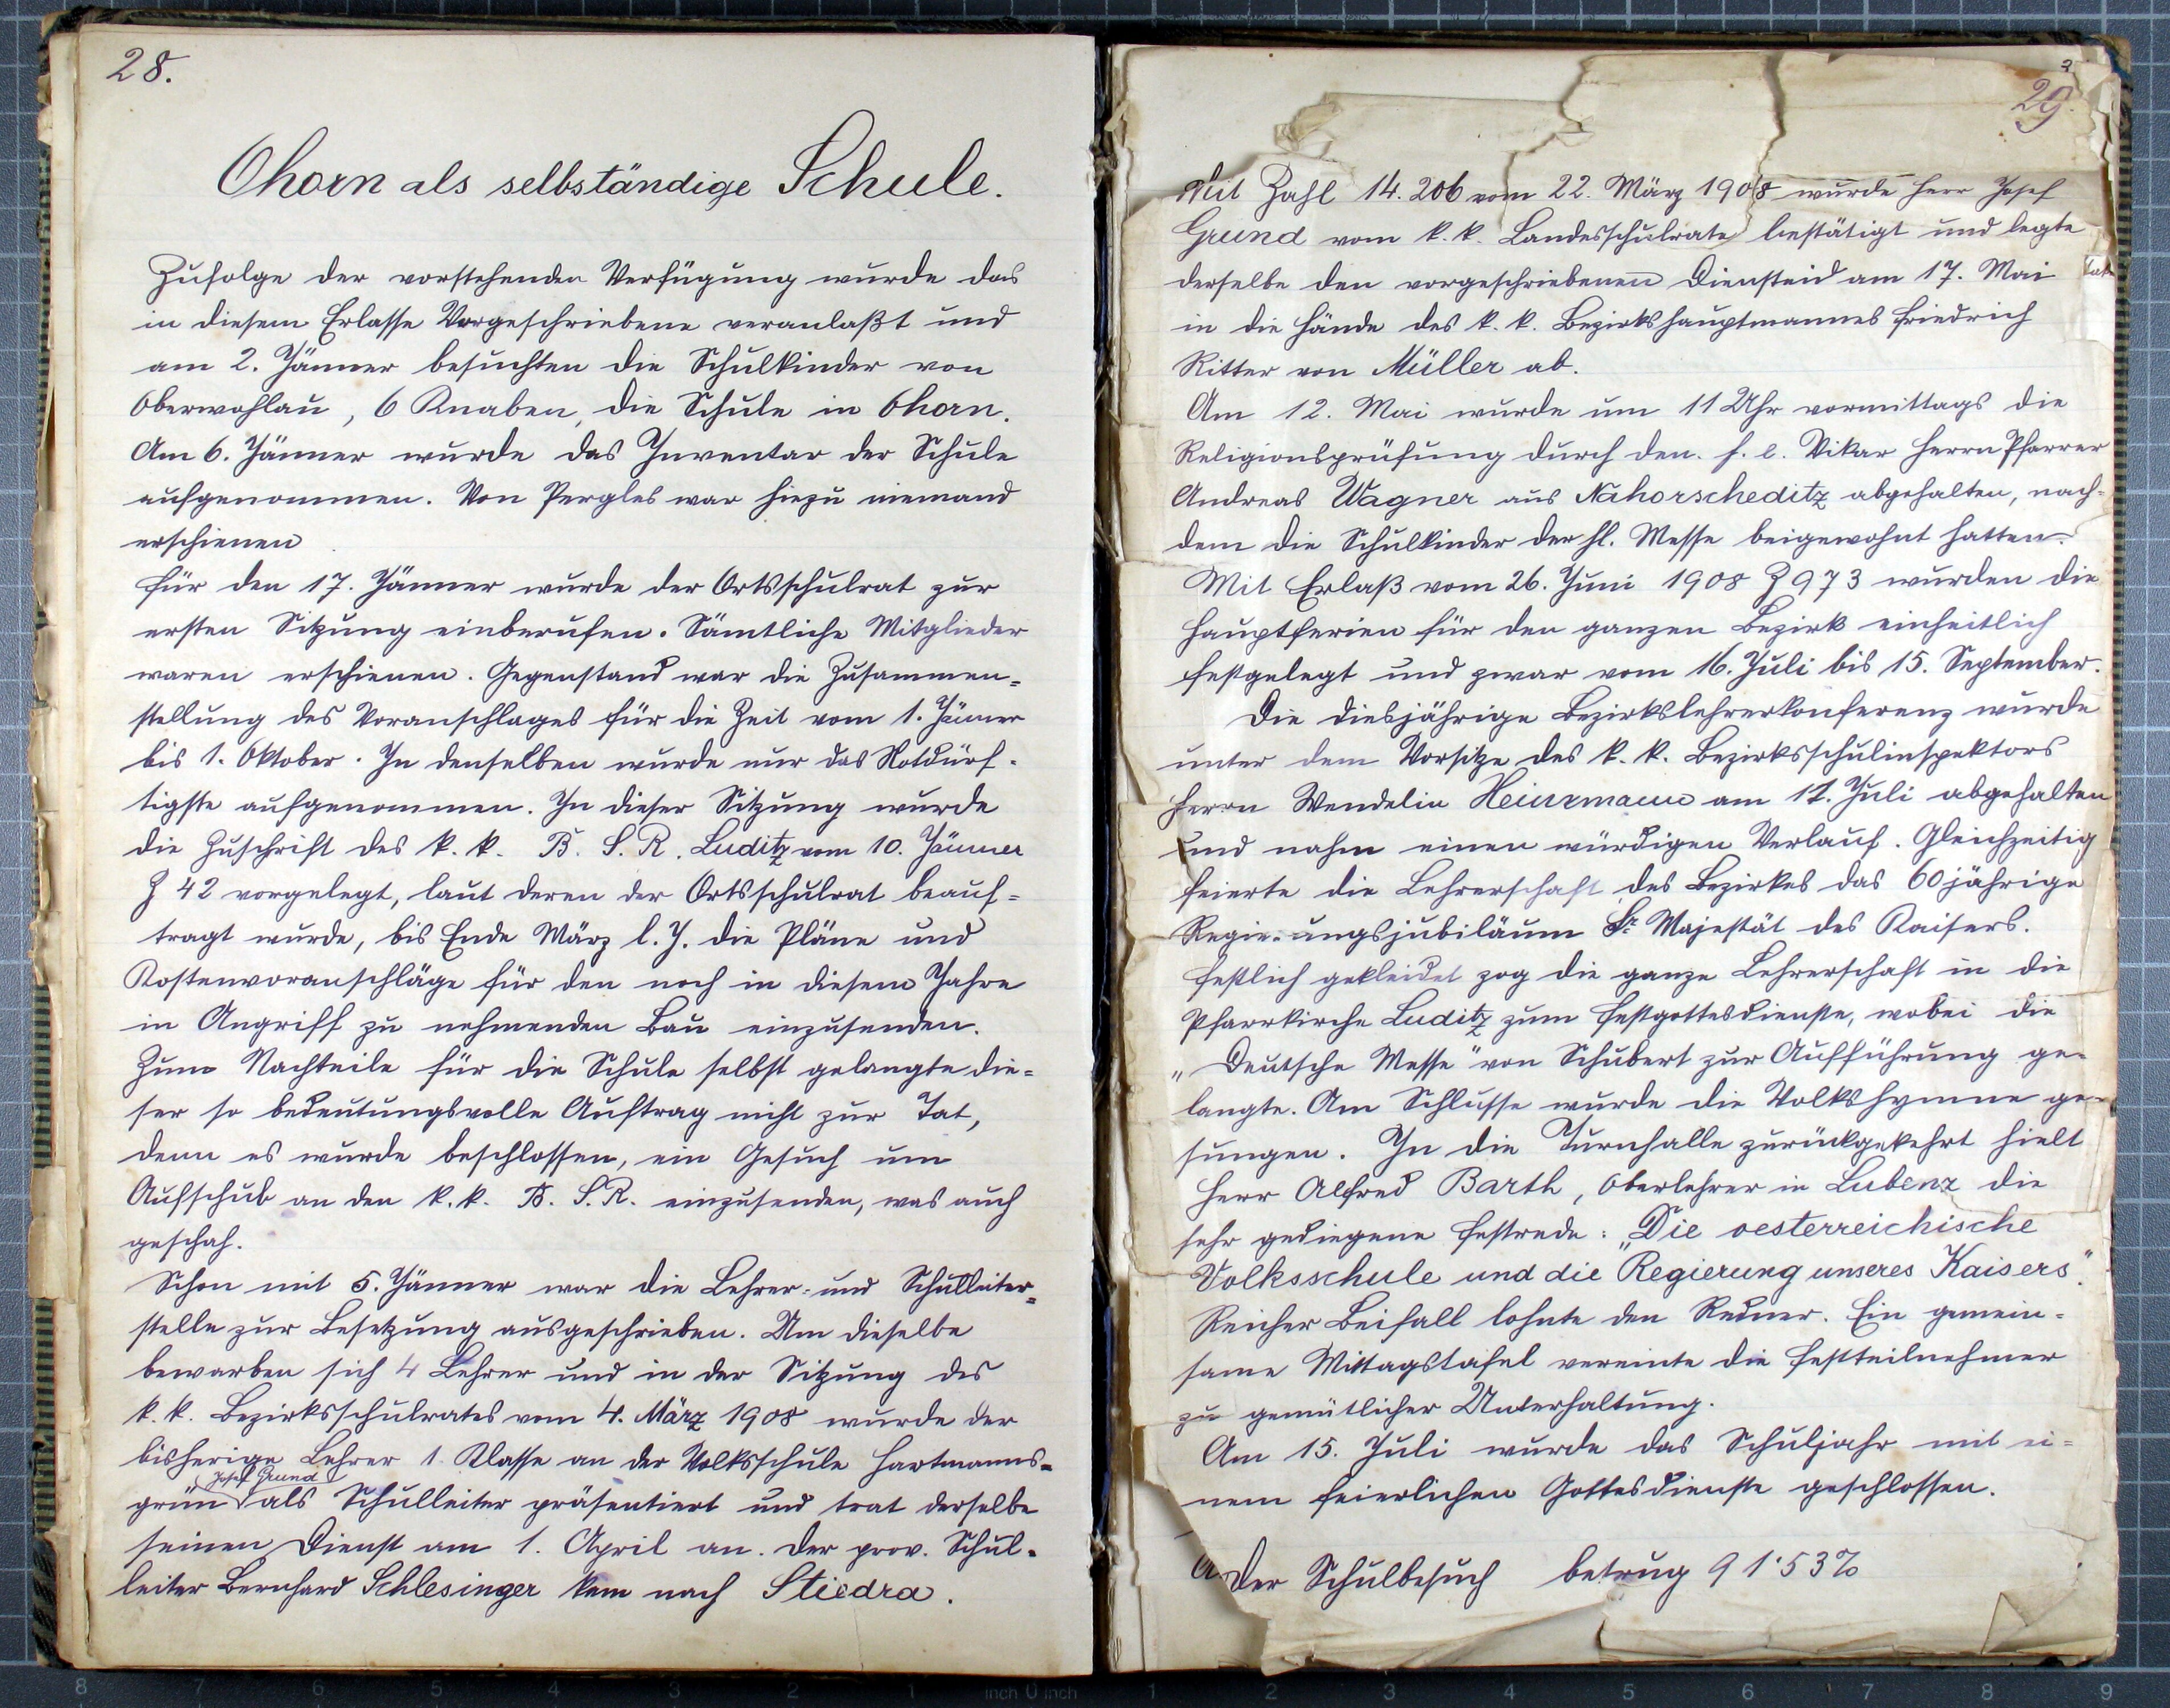 28.
Ohorn als selbständige Schule.
Zufolge der vorstehenden Verfügung wurde das
in diesem Erlasse Vorgeschriebene veranlaßt und
am 2. Jänner besuchten die Schulkinder von
Oberwohlau, 6 Knaben, die Schule in Ohorn.
Am 6. Jänner wurde das Inventar der Schule
aufgenommen. Von Pergles war hiezu niemand
erschienen
Für den 17. Jänner wurde der Ortsschulrat zur
ersten Sitzung einberufen. Sämtliche Mitglieder
waren erschienen. Gegenstand war die Zusammen=
stellung des Voranschlages für die Zeit vom 1. Jänner
bis 1. Oktober. In denselben wurde nur das Notdürf=
tigste aufgenommen. In dieser Sitzung wurde
die Zuschrift des k. k. B. S. R. Luditz vom 10. Jänner
Z 42 vorgelegt, laut deren der Ortsschulrat beauf=
tragt wurde, bis Ende März l. J. die Pläne und
Kostenvoranschläge für den noch in diesem Jahre
in Angriff zu nehmenden Bau einzusenden.
Zum Nachteile für die Schule selbst gelangte die=
ser so bedeutungsvolle Auftrag nicht zur Tat,
denn es wurde beschlossen, ein Gesuch um
Aufschub an den k. k. B. S. R. einzusenden, was auch
geschah.
Schon mit 5. Jänner war die Lehrer= und Schulleiter=
stelle zur Besetzung ausgeschrieben. Um dieselbe
bewarben sich 4 Lehrer und in der Sitzung des
k. k. Bezirksschulrates vom 4. März 1908 wurde der
bisherige Lehrer 1. Klasse an der Volksschule Hartmanns=
Josef Grund
grün als Schulleiter präsentiert und trat derselbe
seinen Dienst am 1. April an. Der prov. Schul=
leiter Bernhard Schlesinger kam nach Stiedra.
29.
Mit Zahl 14.206 vom 22. März 1908 wurde Herr Josef
Grund vom k. k. Landesschulrate bestätigt und legte
derselbe den vorgeschriebenen Diensteid am 17. Mai
in die Hände des k. k. Bezirkshauptmannes Friedrich
Ritter von Müller ab.
Am 12. Mai wurde um 11 Uhr vormittags die
Religionsprüfung durch den f. e. Vikar Herrn Pfarrer
Andreas Wagner aus Nahorscheditz abgehalten, nach=
dem die Schulkinder der hl. Messe beigewohnt hatten.
Mit Erlaß vom 26. Juni 1908 Z 973 wurden die
Hauptferien für den ganzen Bezirk einheitlich
festgelegt und zwar vom 16. Juli bis 15. September.
Die diesjährige Bezirkslehrerkonferenz wurde
unter dem Vorsitze des k. k. Bezirksschulinspektors
Herrn Wendelin Heinzmann am 11. Juli abgehalten
und nahm einen würdigen Verlauf. Gleichzeitig
feierte die Lehrerschaft des Bezirkes das 60 jährige
Regierungsjubiläum Sr. Majestät des Kaisers.
Festlich gekleidet zog die ganze Lehrerschaft in die
Pfarrkirche Luditz zum Festgottesdienste, wobei die
„Deutsche Messe" von Schubert zur Aufführung ge=
langte. Am Schlusse wurde die Volkshymne ge=
sungen. In die Turnhalle zurückgekehrt hielt
Herr Alfred Barth, Oberlehrer in Lubenz die
sehr gediegene Festrede: „Die oesterreichische
Volksschule und die Regierung unseres Kaisers".
Reicher Beifall lohnte den Redner. Ein gemein=
same Mittagstafel vereinte die Festteilnehmer
zu gemütlicher Unterhaltung.
Am 15. Juli wurde das Schuljahr mit ei=
nem feierlichen Gottesdienste geschlossen.
Der Schulbesuch betrug 91·53%
8 7 6 5 4 3 2 1 inch 0 inch 1 2 3 4 5 6 7 8 9